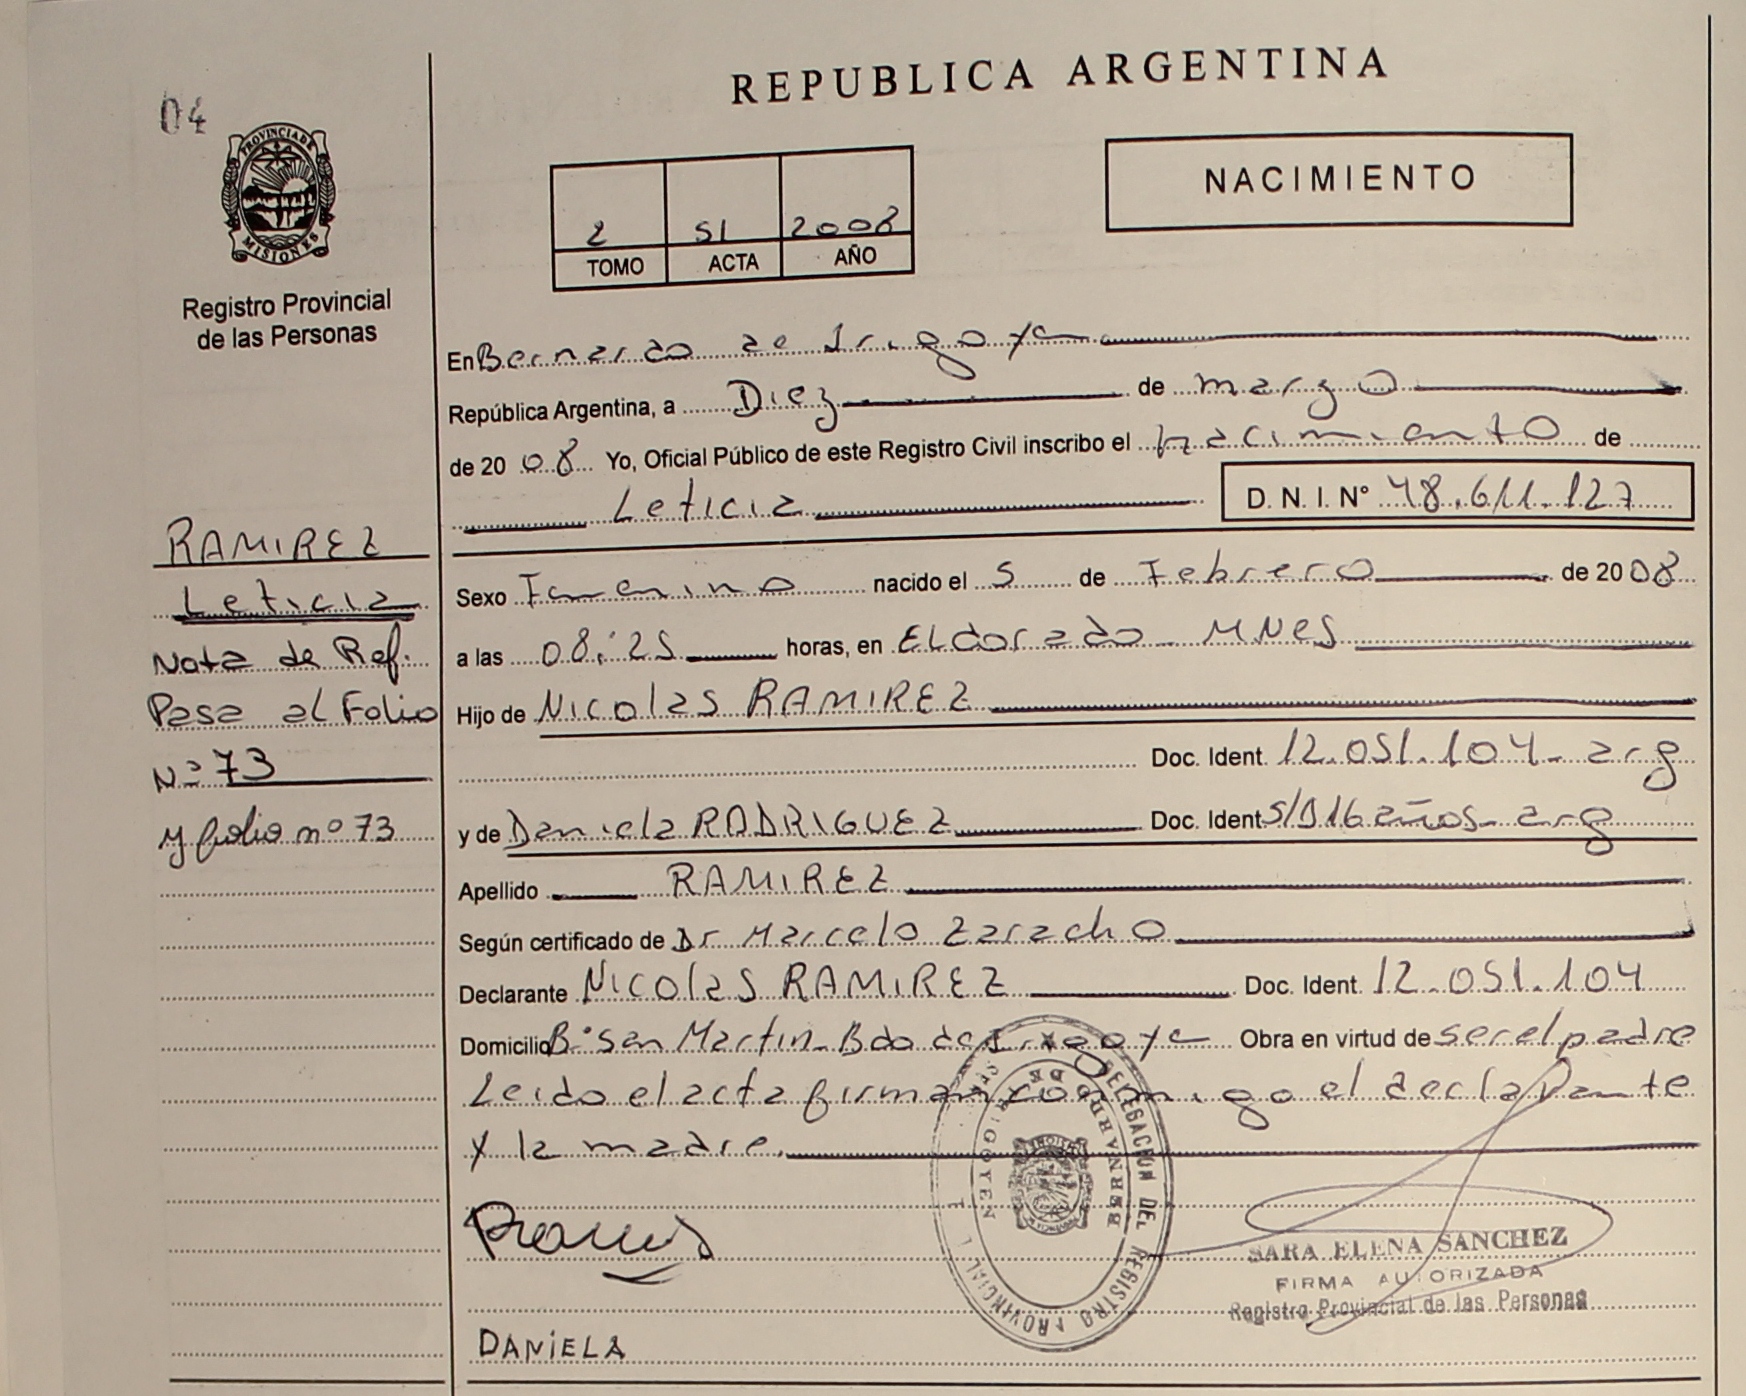 REPUBLICA ARGENTINA
04
PROVINCIA DE MISIONES
Registro Provincial
de las Personas
NACIMIENTO
2 51 2008
TOMO ACTA AÑO
En Bernardo de Irigoye
República Argentina, a Diez de marzo
de 2008 Yo, Oficial Público de este Registro Civil inscribo el nacimiento de
Leticia D.N.I. Nº 48.611.127
RAMIREZ
Leticia
Nota de Ref.
Pasa al Folio
Nº 73
y folio nº 73
Sexo Femenino nacido el 5 de Febrero de 2008
a las 08:25 horas, en Eldorado - MNES
Hijo de Nicolas RAMIREZ
Doc. Ident. 12.051.104 - arg
y de Daniela RODRIGUEZ Doc. Ident S/D 16 años - arg
Apellido RAMIREZ
Según certificado de Dr Marcelo Zaracho
Declarante Nicolas RAMIREZ Doc. Ident. 12.051.104
Domicilio Bº San Martin - Bdo de Irigoye Obra en virtud de ser el padre
Leido el acta firman conmigo el declarante
y la madre
DELEGACION DEL REGISTRO PROVINCIAL
BERNARDO DE IRIGOYEN
SARA ELENA SANCHEZ
FIRMA AUTORIZADA
Registro Provincial de las Personas
DANIELA